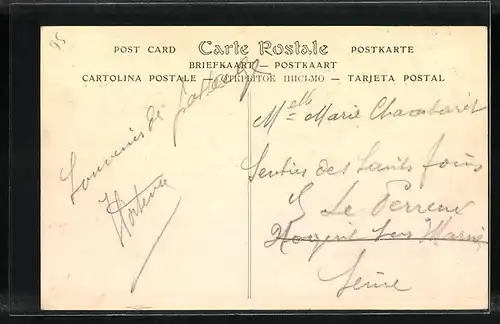 95
POST CARD Carte Postale POSTKARTE
BRIEFKAART — POSTKAART
CARTOLINA POSTALE — ОТКРЫТОЕ ПИСЬМО — TARJETA POSTAL
Souvenir de
Hortense
Melle Marie Chambaret
Sentier des Hauts
5 Le Perreux
Nogent sur Marne
Seine